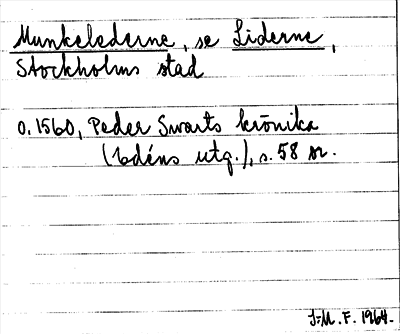 Munkelederne, se Liderne,
Stockholms stad
o. 1560, Peder Swarts krönika
(Edéns utg.), s. 58 
J-M. F. 1964.